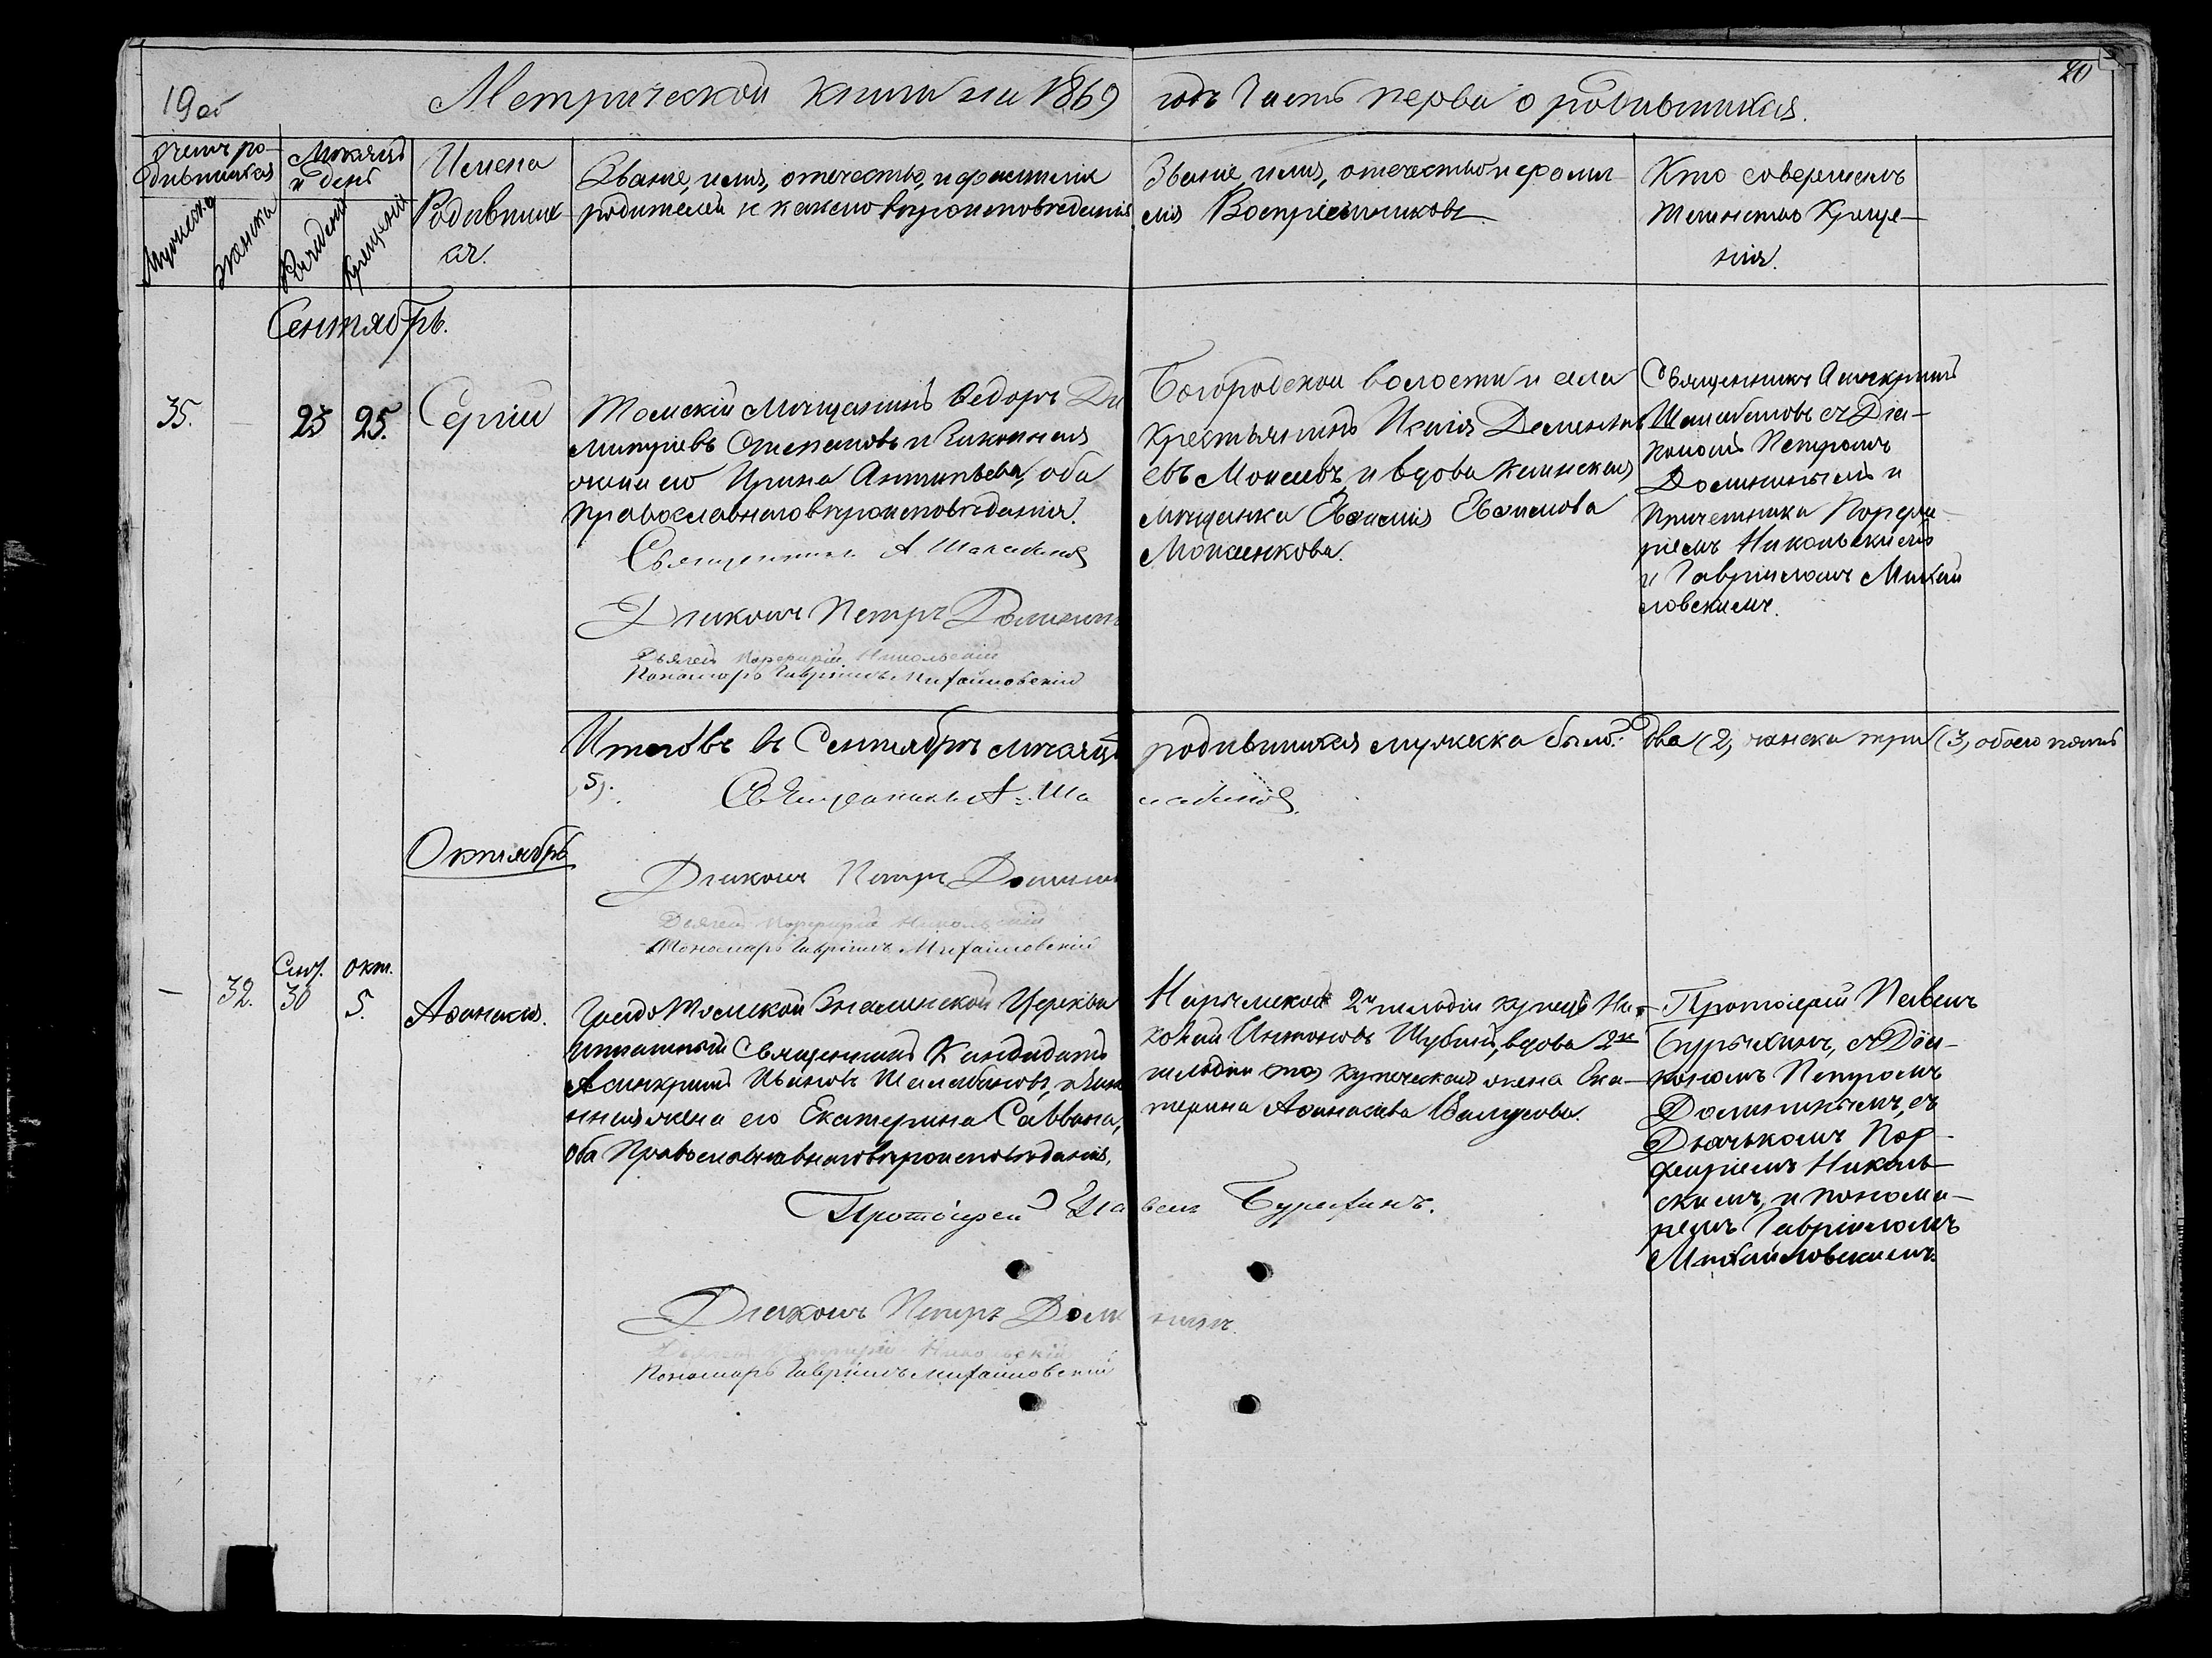 19об
20
Метрической книги на 1869 годъ Часть перва о родившихся.
Счетъ ро-
дившихся
Мужеска
женска
Мѣсяцъ
и день
Рожденія
Крещенія
Имена
Родивших
ся.
Званіе, имя, отечество, и фамилія
родителей и какого вѣроисповѣданія
Званіе, имя, отечество и фами-
лія Воспріемниковъ
Кто совершалъ
таинство Креще-
нія.
Сентябрь.
35.
23
25.
Сергій
Томскій Мѣщанинъ Ѳедоръ Ди
митріевъ Степановъ и Законная
жена его Ирина Антипьева, оба
православнаго вѣроисповѣданія.
Священникъ А. Шалабановъ
Діаконъ Петръ Домининъ
Дьячекъ Порфирій Никольскій
Пономарь Гавріилъ Михайловскій
Богородской волости и села
Крестьянинъ Дементь
евъ и вдова
мѣщанка Евѳимія Евѳимова
Священникъ Асинкритъ
Шалабановъ съ Діа-
кономъ Петромъ
Доминымъ и
причетника Порфи-
ріемъ Никольскимъ
и Гавріиломъ Михай
ловскимъ.
Итого въ Сентябрѣ мѣсяцѣ родившихся мужеска было: два (2, женска три (3, обоего пять
5).
Священникъ А. Шалабановъ
Октябрь
Діаконъ Петръ Доминин
Дьячекъ Порфирій Никольскій
Пономарь Гавріилъ Михайловскій
—
32.
Сент.
30
Окт.
5.
Аѳанасія.
Градо Томской Знаменской Церкви
штатный Священникъ Кандидатъ
Асинкритъ Ивановъ Шалабановъ, и Зако
нная жена его Екатерина Саввина,
Оба Православнаго вѣроисповѣданія.
Протоіерей Павелъ
Діаконъ Петръ Доминин
Дьячекъ Порфирій Никольскій
Пономарь Гавріилъ Михайловскій
Нарымской 2й гильдіи купецъ Ни-
колай Антоновъ вдова 2й
гильдіи купеческая жена Ека-
терина Аѳанасіева
Протоіерей Павелъ
съ Діа-
кономъ Петромъ
Доминымъ, съ
Дьячькомъ Пор-
фиріемъ Николь-
скимъ, и понома-
ремъ Гавріиломъ
Михайловскимъ.